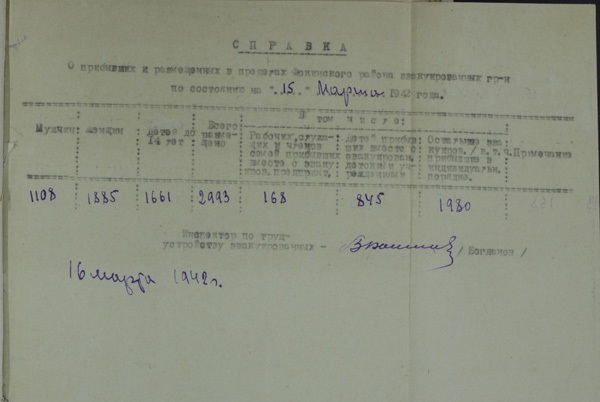 СПРАВКА
О прибывших и размещенных в пределах района эвакуированных гр-н
по состоянию на "15" Марта 1942 года.
В том числе:
Мужчин женщин Детей до 14 лет Всего размещено Рабочих, служащих и членов семей прибывших вместе с эвакуиров. предприят. Детей прибывших вместе с эвакуирован. детскими учреждениями Остальные эвакуиров. /в т.ч. прибывшие в индивидуальн. порядке. Примечание
1108 1885 1661 2993 168 845 1980
Инспектор по трудустройству эвакуированных - / Богданов /
16 марта 1942 г.